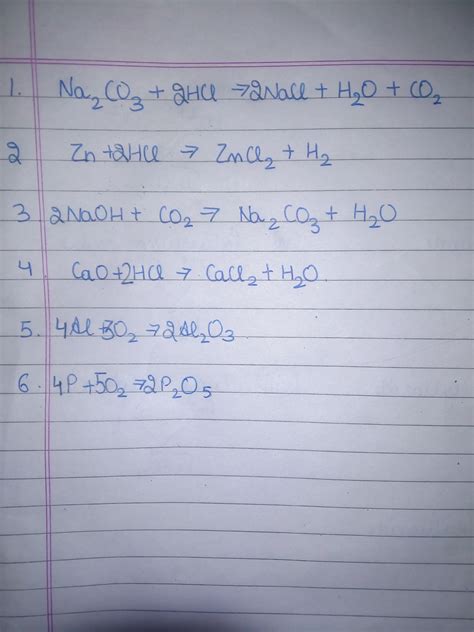 1. Na₂CO₃ + 2HCl → 2NaCl + H₂O + CO₂
2 Zn + 2HCl → ZnCl₂ + H₂
3 2NaOH + CO₂ → Na₂CO₃ + H₂O
4 CaO + 2HCl → CaCl₂ + H₂O
5. 4Al + 3O₂ → 2Al₂O₃
6. 4P + 5O₂ → 2P₂O₅